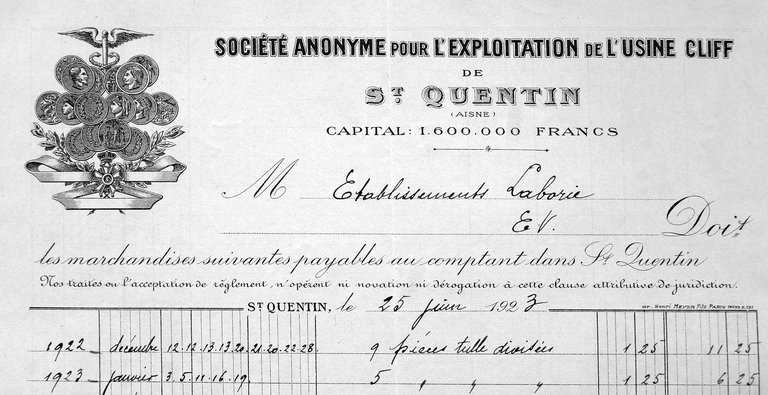 SOCIÉTÉ ANONYME POUR L'EXPLOITATION DE L'USINE CLIFF
DE
ST QUENTIN
(AISNE)
CAPITAL: 1.600.000 FRANCS
M Etablissements Laborie
E.V. Doit
les marchandises suivantes payables au comptant dans St Quentin
Nos traites ou l'acceptation de règlement, n'opèrent ni novation ni dérogation à cette clause attributive de juridiction.
ST QUENTIN, le 25 juin 1923
Henri MEYER Fils PARIS
1922 décembre 12.12.13.13.20.21.20.22.28. 9 pièces tulle divisées 1 25 11 25
1923 janvier 3.5.11.16.19. 5 " " " 1 25 6 25